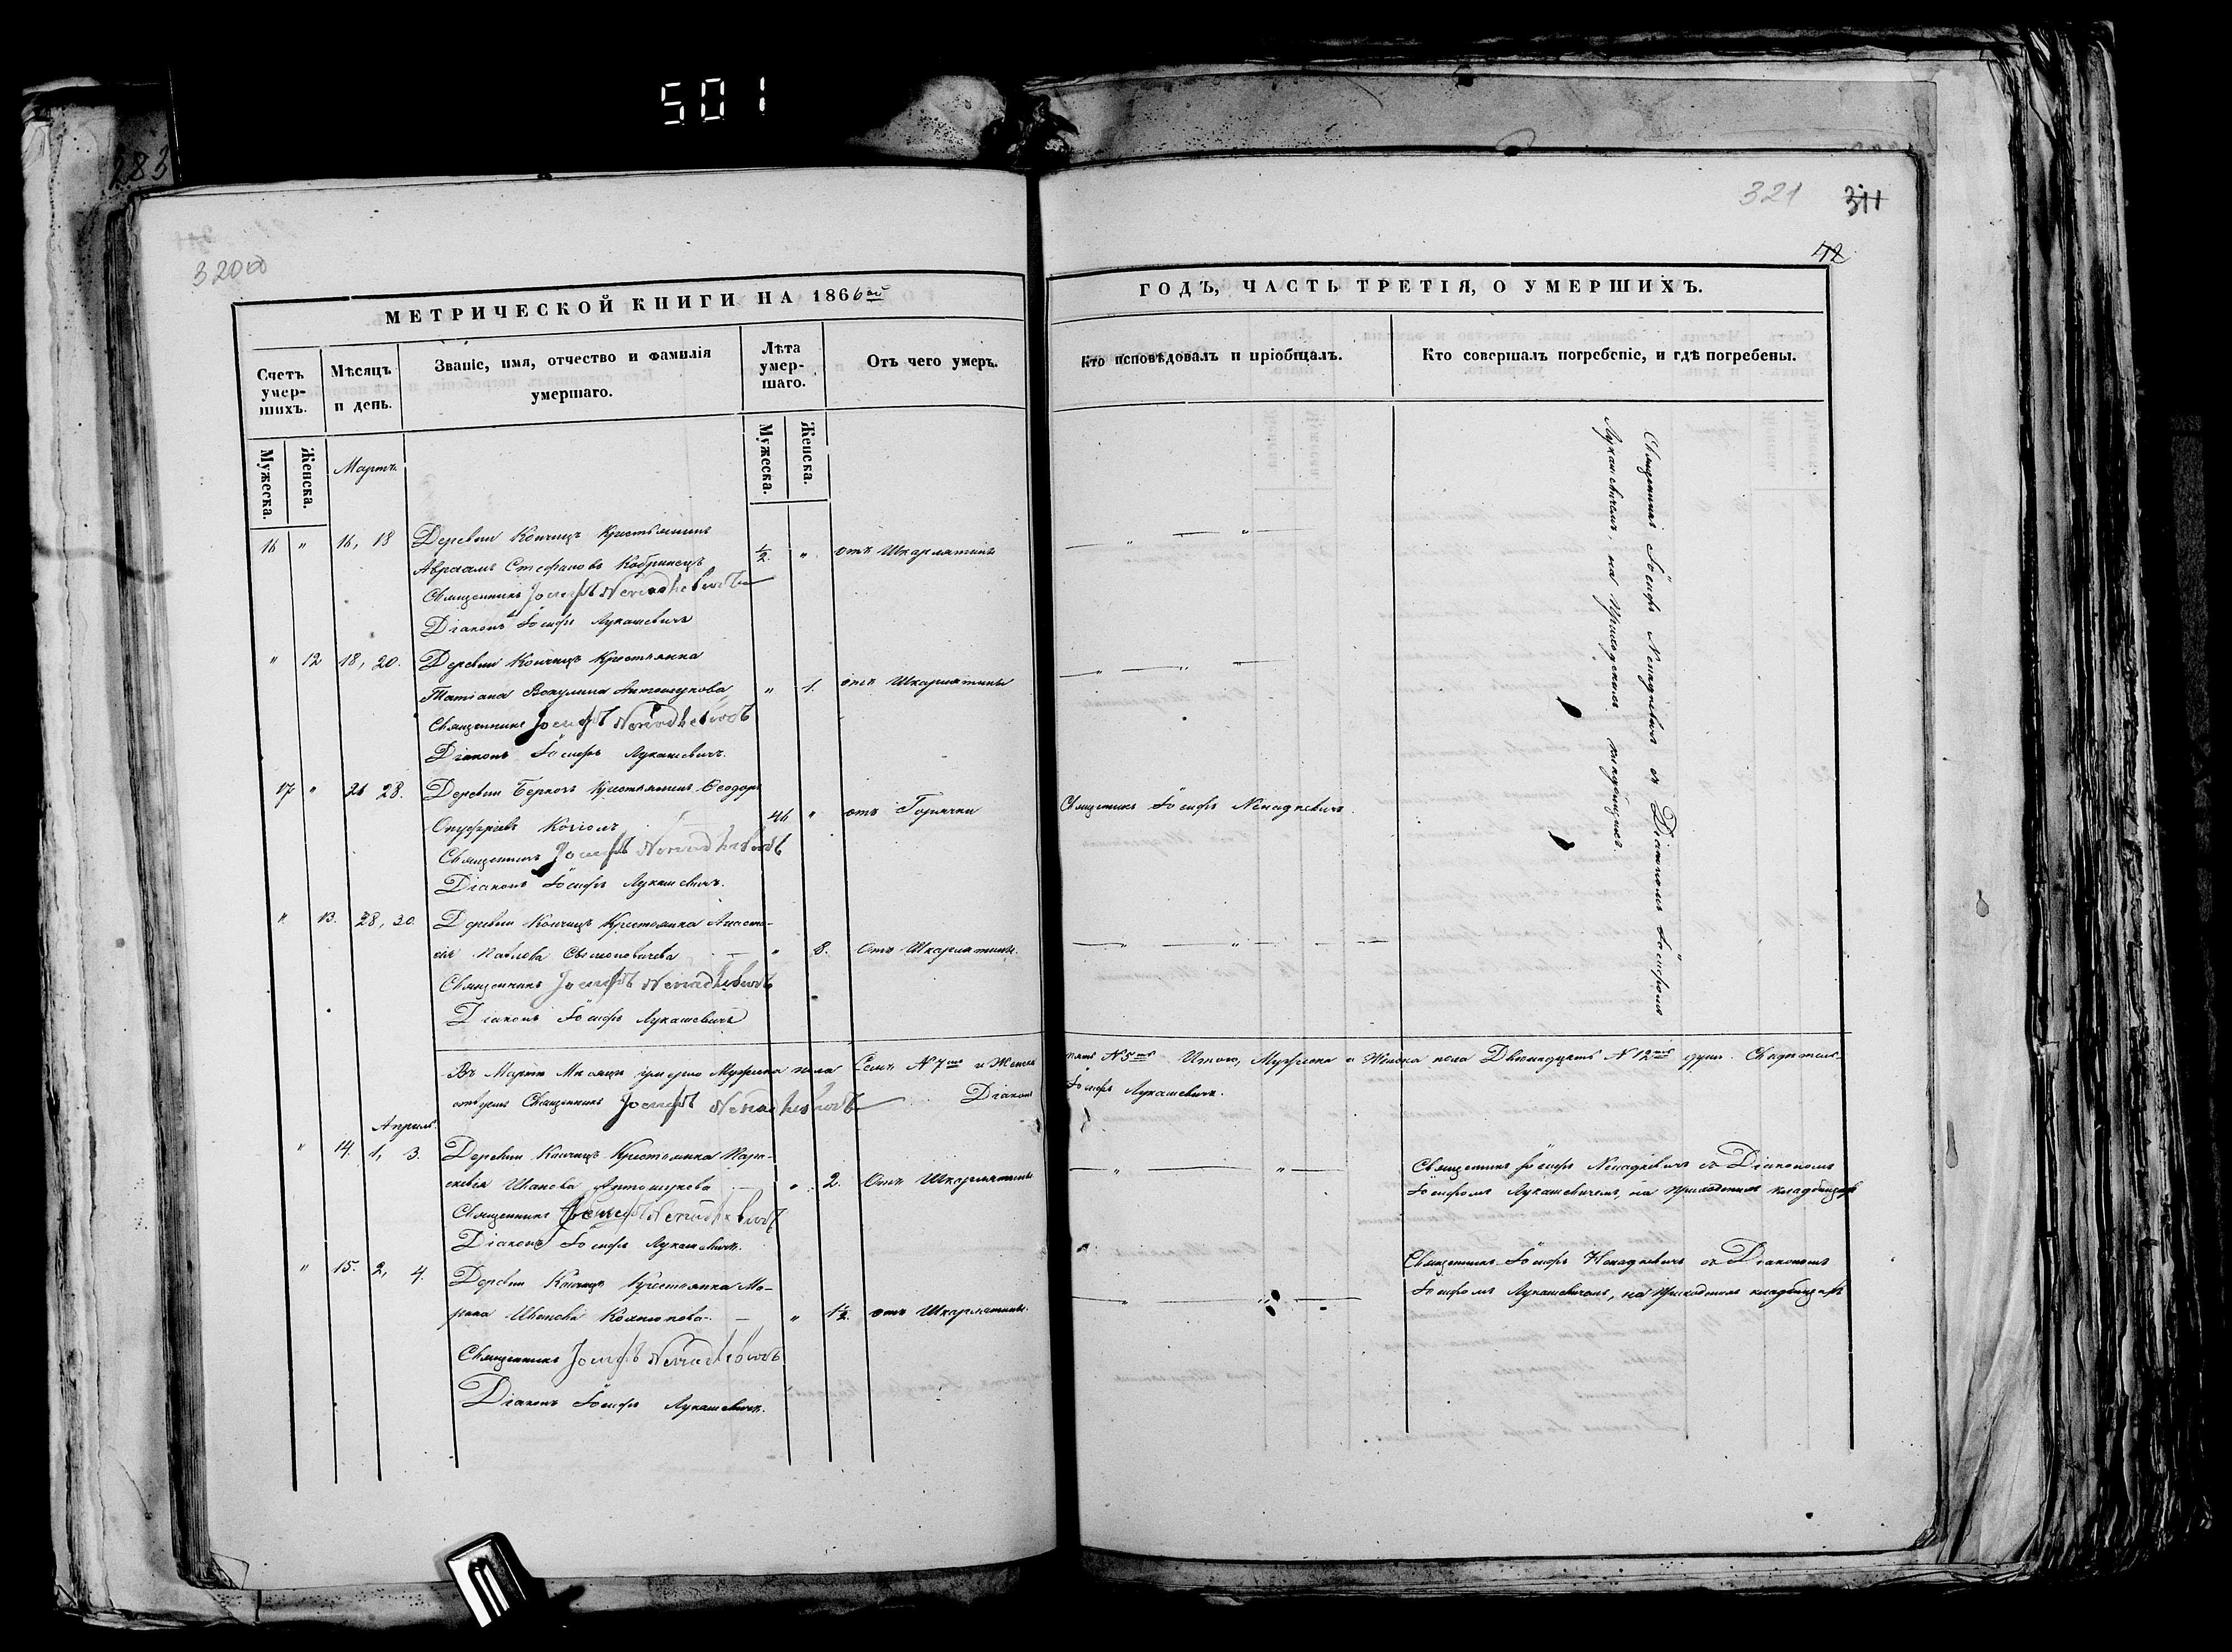 501
283
320об
321
311
42
МЕТРИЧЕСКОЙ КНИГИ НА 1866ой
ГОДЪ, ЧАСТЬ ТРЕТІЯ, О УМЕРШИХЪ.
Счетъ умер-шихъ.
Мѣсяцъ и день.
Званіе, имя, отчество и фамилія умершаго.
Лѣта умер-шаго.
Отъ чего умеръ.
Кто исповѣдовалъ и пріобщалъ.
Кто совершалъ погребеніе, и гдѣ погребены.
Мужеска.
Женска.
Мужеска.
Женска.
Мартъ.
16 " 16, 18 Деревни Кончицъ Крестьянинъ
Авраамъ Стефановъ Кобринецъ ½ " отъ Шкарлятины — " — " —
Священникъ Іосифъ Ненадкевичъ
Діаконъ Іосифъ Лукашевичъ
" 12 18, 20. Деревни Кончицъ Крестьянка
Татіана Антонюкова " 1. отъ Шкарлятины — " — " —
Священникъ Іосифъ Ненадкевичъ
Діаконъ Іосифъ Лукашевичъ.
17 " 26 28. Деревни Крестьянинъ Ѳеодоръ
Онуфріевъ 46 " отъ Горячки Священникъ Іосифъ Ненадкевичъ
Священникъ Іосифъ Ненадкевичъ
Діаконъ Іосифъ Лукашевичъ.
" 13. 28, 30 Деревни Кончицъ Крестьянка Анаста-
сія Павлова " 8. Отъ Шкарлятины. — " — " —
Священникъ Іосифъ Ненадкевичъ
Діаконъ Іосифъ Лукашевичъ
Священникъ Іосифъ Ненадкевичъ съ Діакономъ Іосифомъ
Лукашевичемъ, на Приходскомъ кладбищѣ.
Въ Мартѣ Мѣсяцѣ умерло Мужеска пола Семь N 7мъ и Женска пять N 5ть Итого, Мужеска и Женска пола Двѣнадцать N 12ть душъ. Свидѣтель-
ствуемъ Священникъ Іосифъ Ненадкевичъ Діаконъ Іосифъ Лукашевичъ.
Апрѣль.
" 14. 1, 3. Деревни Кончицъ Крестьянка Пара-
скевія Иванова Антонюкова " 2. Отъ Шкарлятины — " — " —
Священникъ Іосифъ Ненадкевичъ
Діаконъ Іосифъ Лукашевичъ.
Священникъ Іосифъ Ненадкевичъ съ Діакономъ
Іосифомъ Лукашевичемъ, на Приходскомъ кладбищѣ
" 15. 2, 4. Деревни Кончицъ Крестьянка Ма-
рина Иванова " 1½. отъ Шкарлятины.
Священникъ Іосифъ Ненадкевичъ
Діаконъ Іосифъ Лукашевичъ.
Священникъ Іосифъ Ненадкевичъ съ Діакономъ
Іосифомъ Лукашевичемъ, на Приходскомъ кладбищѣ